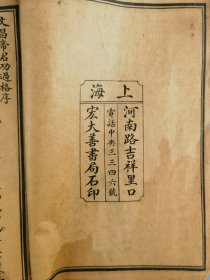 上海
河南路吉祥里口
電話中央三三四六號
宏大善書局石印
文昌帝君功過格序